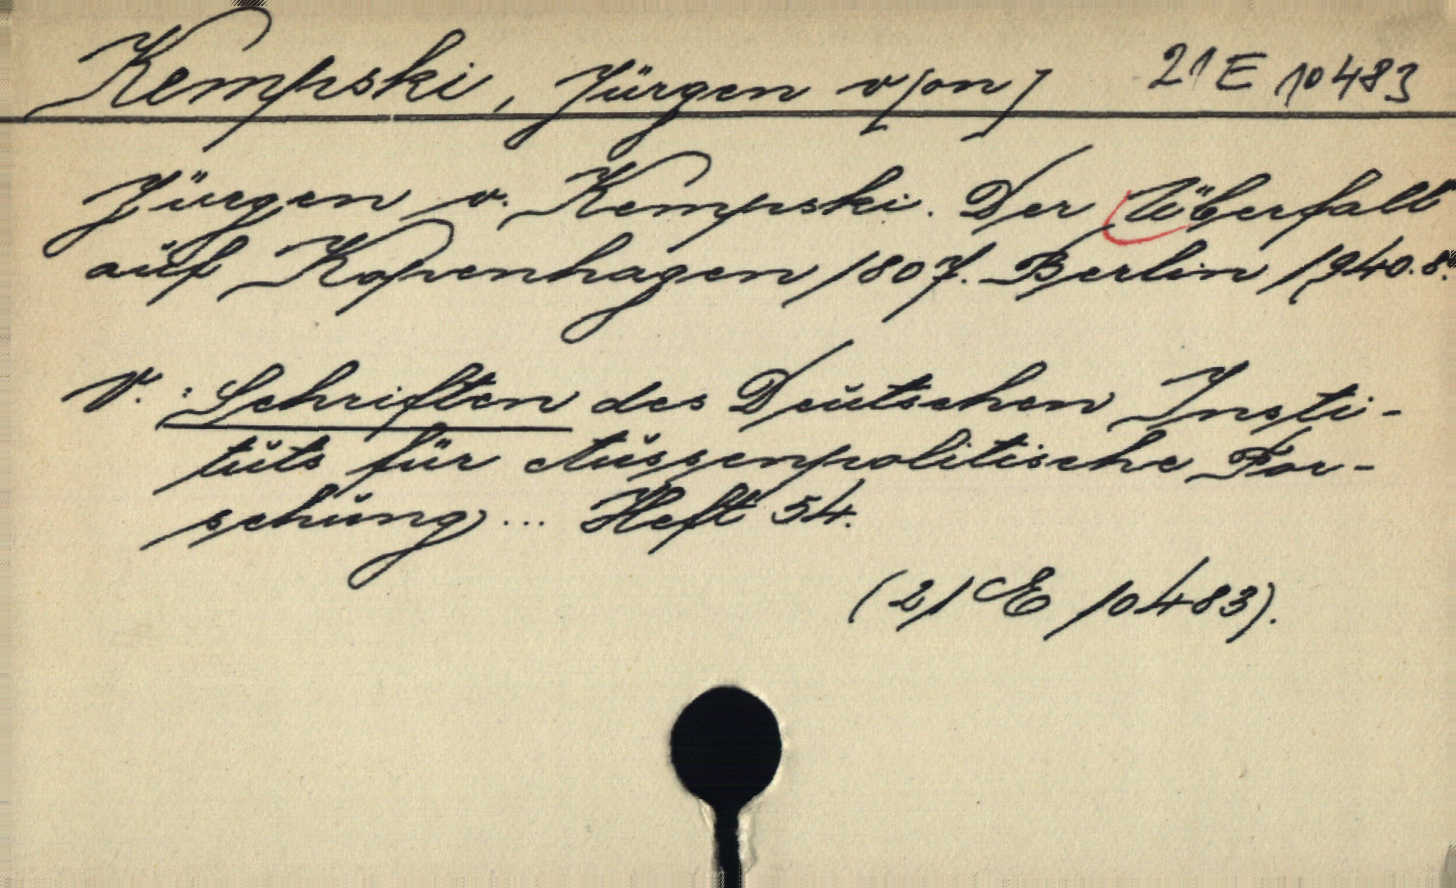 Kempski, Jürgen v[on] 21 E 10483
Jürgen v. Kempski. Der Überfall
auf Kopenhagen 1807. Berlin 1940. 8.°
V.: Schriften des Deutschen Insti-
tuts für Aussenpolitische For-
schung ... Heft 54.
(21 E 10483).